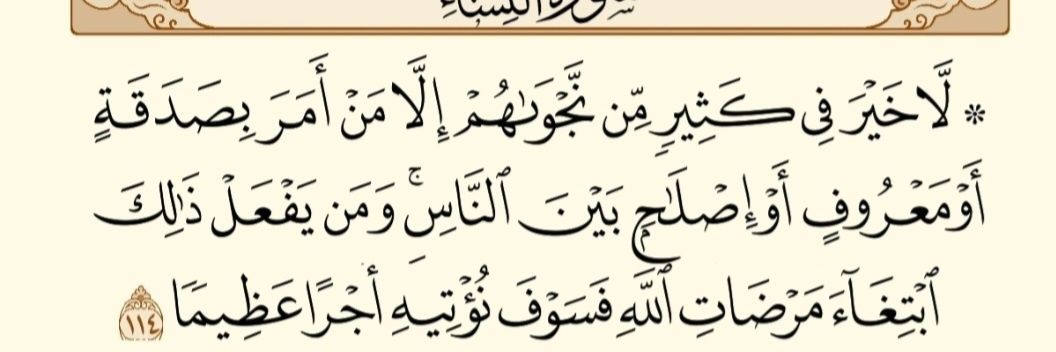 سورة النساء
* لَّا خَيْرَ فِي كَثِيرٍ مِّن نَّجْوَىٰهُمْ إِلَّا مَنْ أَمَرَ بِصَدَقَةٍ
أَوْ مَعْرُوفٍ أَوْ إِصْلَٰحٍۭ بَيْنَ ٱلنَّاسِۚ وَمَن يَفْعَلْ ذَٰلِكَ
ٱبْتِغَآءَ مَرْضَاتِ ٱللَّهِ فَسَوْفَ نُؤْتِيهِ أَجْرًا عَظِيمًا ١١٤